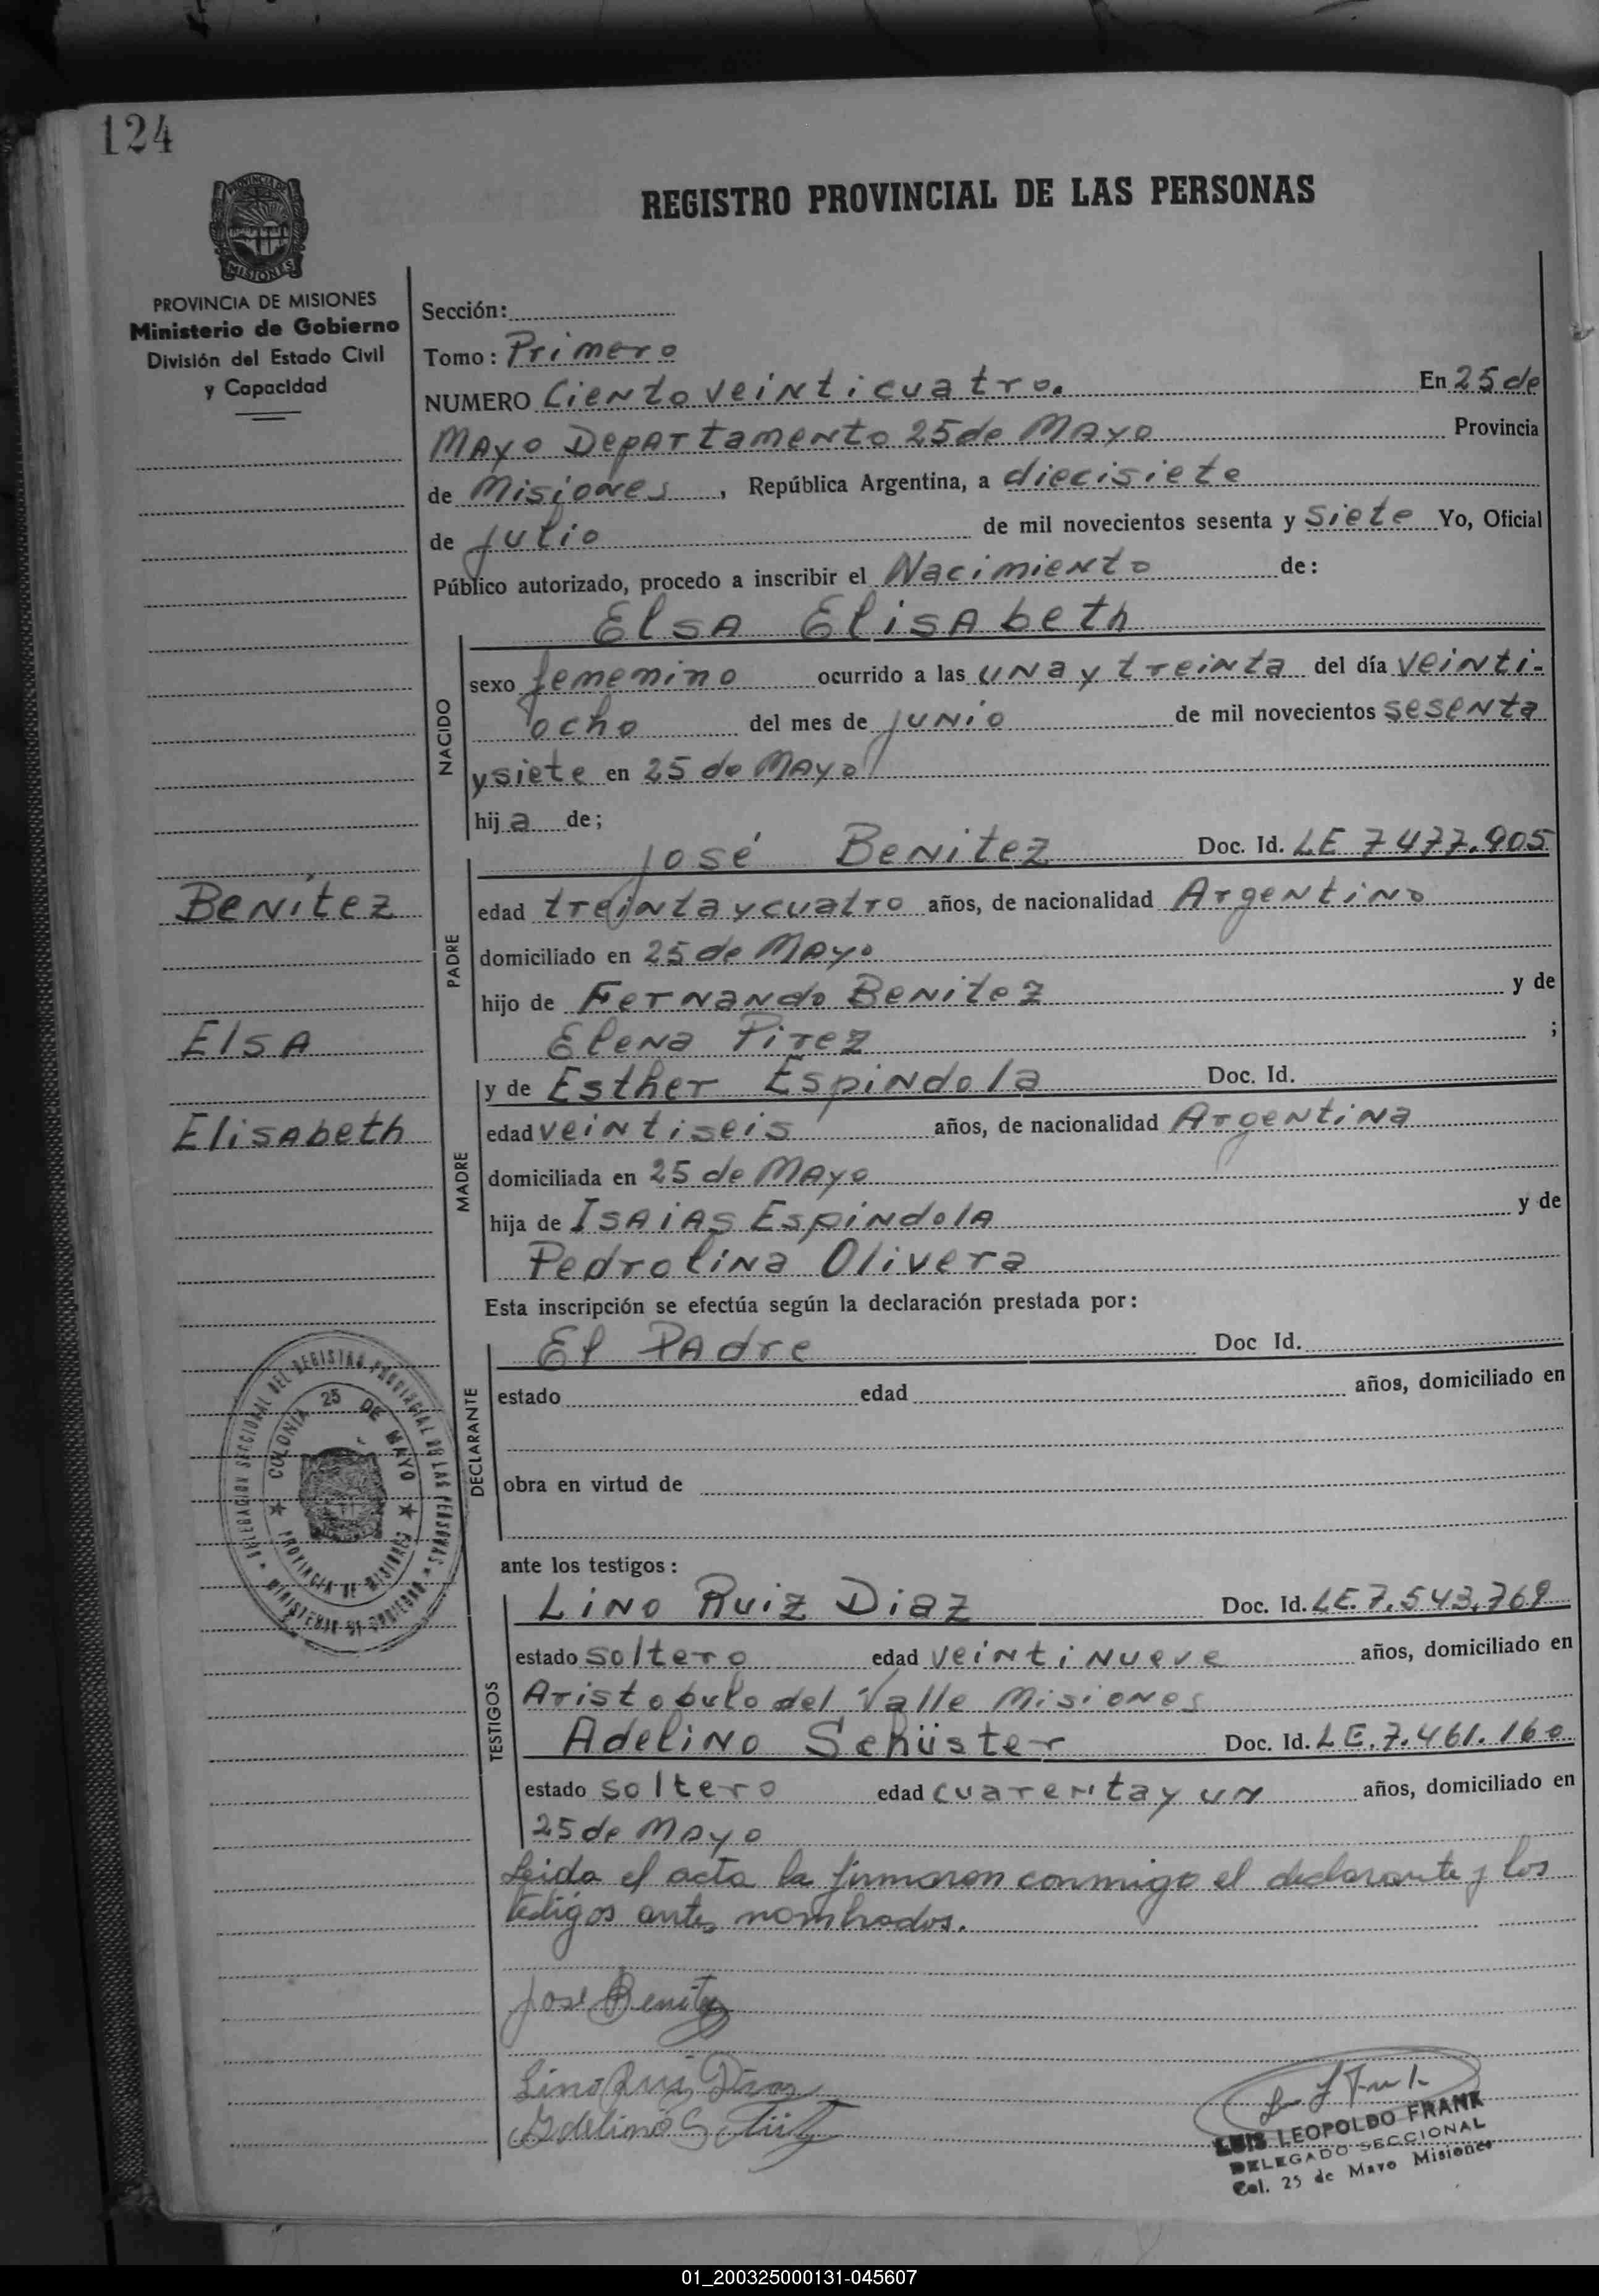 124
REGISTRO PROVINCIAL DE LAS PERSONAS
PROVINCIA DE MISIONES
MISIONES
PROVINCIA DE MISIONES
Ministerio de Gobierno
División del Estado Civil
y Capacidad
Sección:
Tomo: Primero
NUMERO Ciento veinticuatro. En 25 de
Mayo Departamento 25 de Mayo Provincia
de Misiones, República Argentina, a diecisiete
de julio de mil novecientos sesenta y siete Yo, Oficial
Público autorizado, procedo a inscribir el Nacimiento de:
Elsa Elisabeth
NACIDO
sexo femenino ocurrido a las una y treinta del día veinti-
ocho del mes de junio de mil novecientos sesenta
y siete en 25 de Mayo
hija de;
José Benitez Doc. Id. LE 7477.905
Benítez
PADRE
edad treinta y cuatro años, de nacionalidad Argentino
domiciliado en 25 de Mayo
hijo de Fernando Benitez y de
Elsa
Elena Pirez ;
y de Esther Espindola Doc. Id.
Elisabeth
MADRE
edad veintiseis años, de nacionalidad Argentina
domiciliada en 25 de Mayo
hija de Isaias Espindola y de
Pedrolina Olivera
Esta inscripción se efectúa según la declaración prestada por:
El Padre Doc Id.
DECLARANTE
estado edad años, domiciliado en
obra en virtud de
DELEGACION SECCIONAL DEL REGISTRO PROVINCIAL DE LAS PERSONAS
MINISTERIO DE GOBIERNO
COLONIA 25 DE MAYO
PROVINCIA DE MISIONES
ante los testigos:
TESTIGOS
Lino Ruiz Diaz Doc. Id. LE.7.543.769
estado soltero edad veintinueve años, domiciliado en
Aristobulo del Valle Misiones
Adelino Schüster Doc. Id. LE.7.461.160
estado soltero edad cuarenta y un años, domiciliado en
25 de Mayo
Leida el acta la firmaron conmigo el declarante y los
testigos antes nombrados.
José Benitez
Lino Ruiz Diaz
Adelino
LUIS LEOPOLDO FRANK
DELEGADO SECCIONAL
Col. 25 de Mayo Misiones
01_200325000131-045607